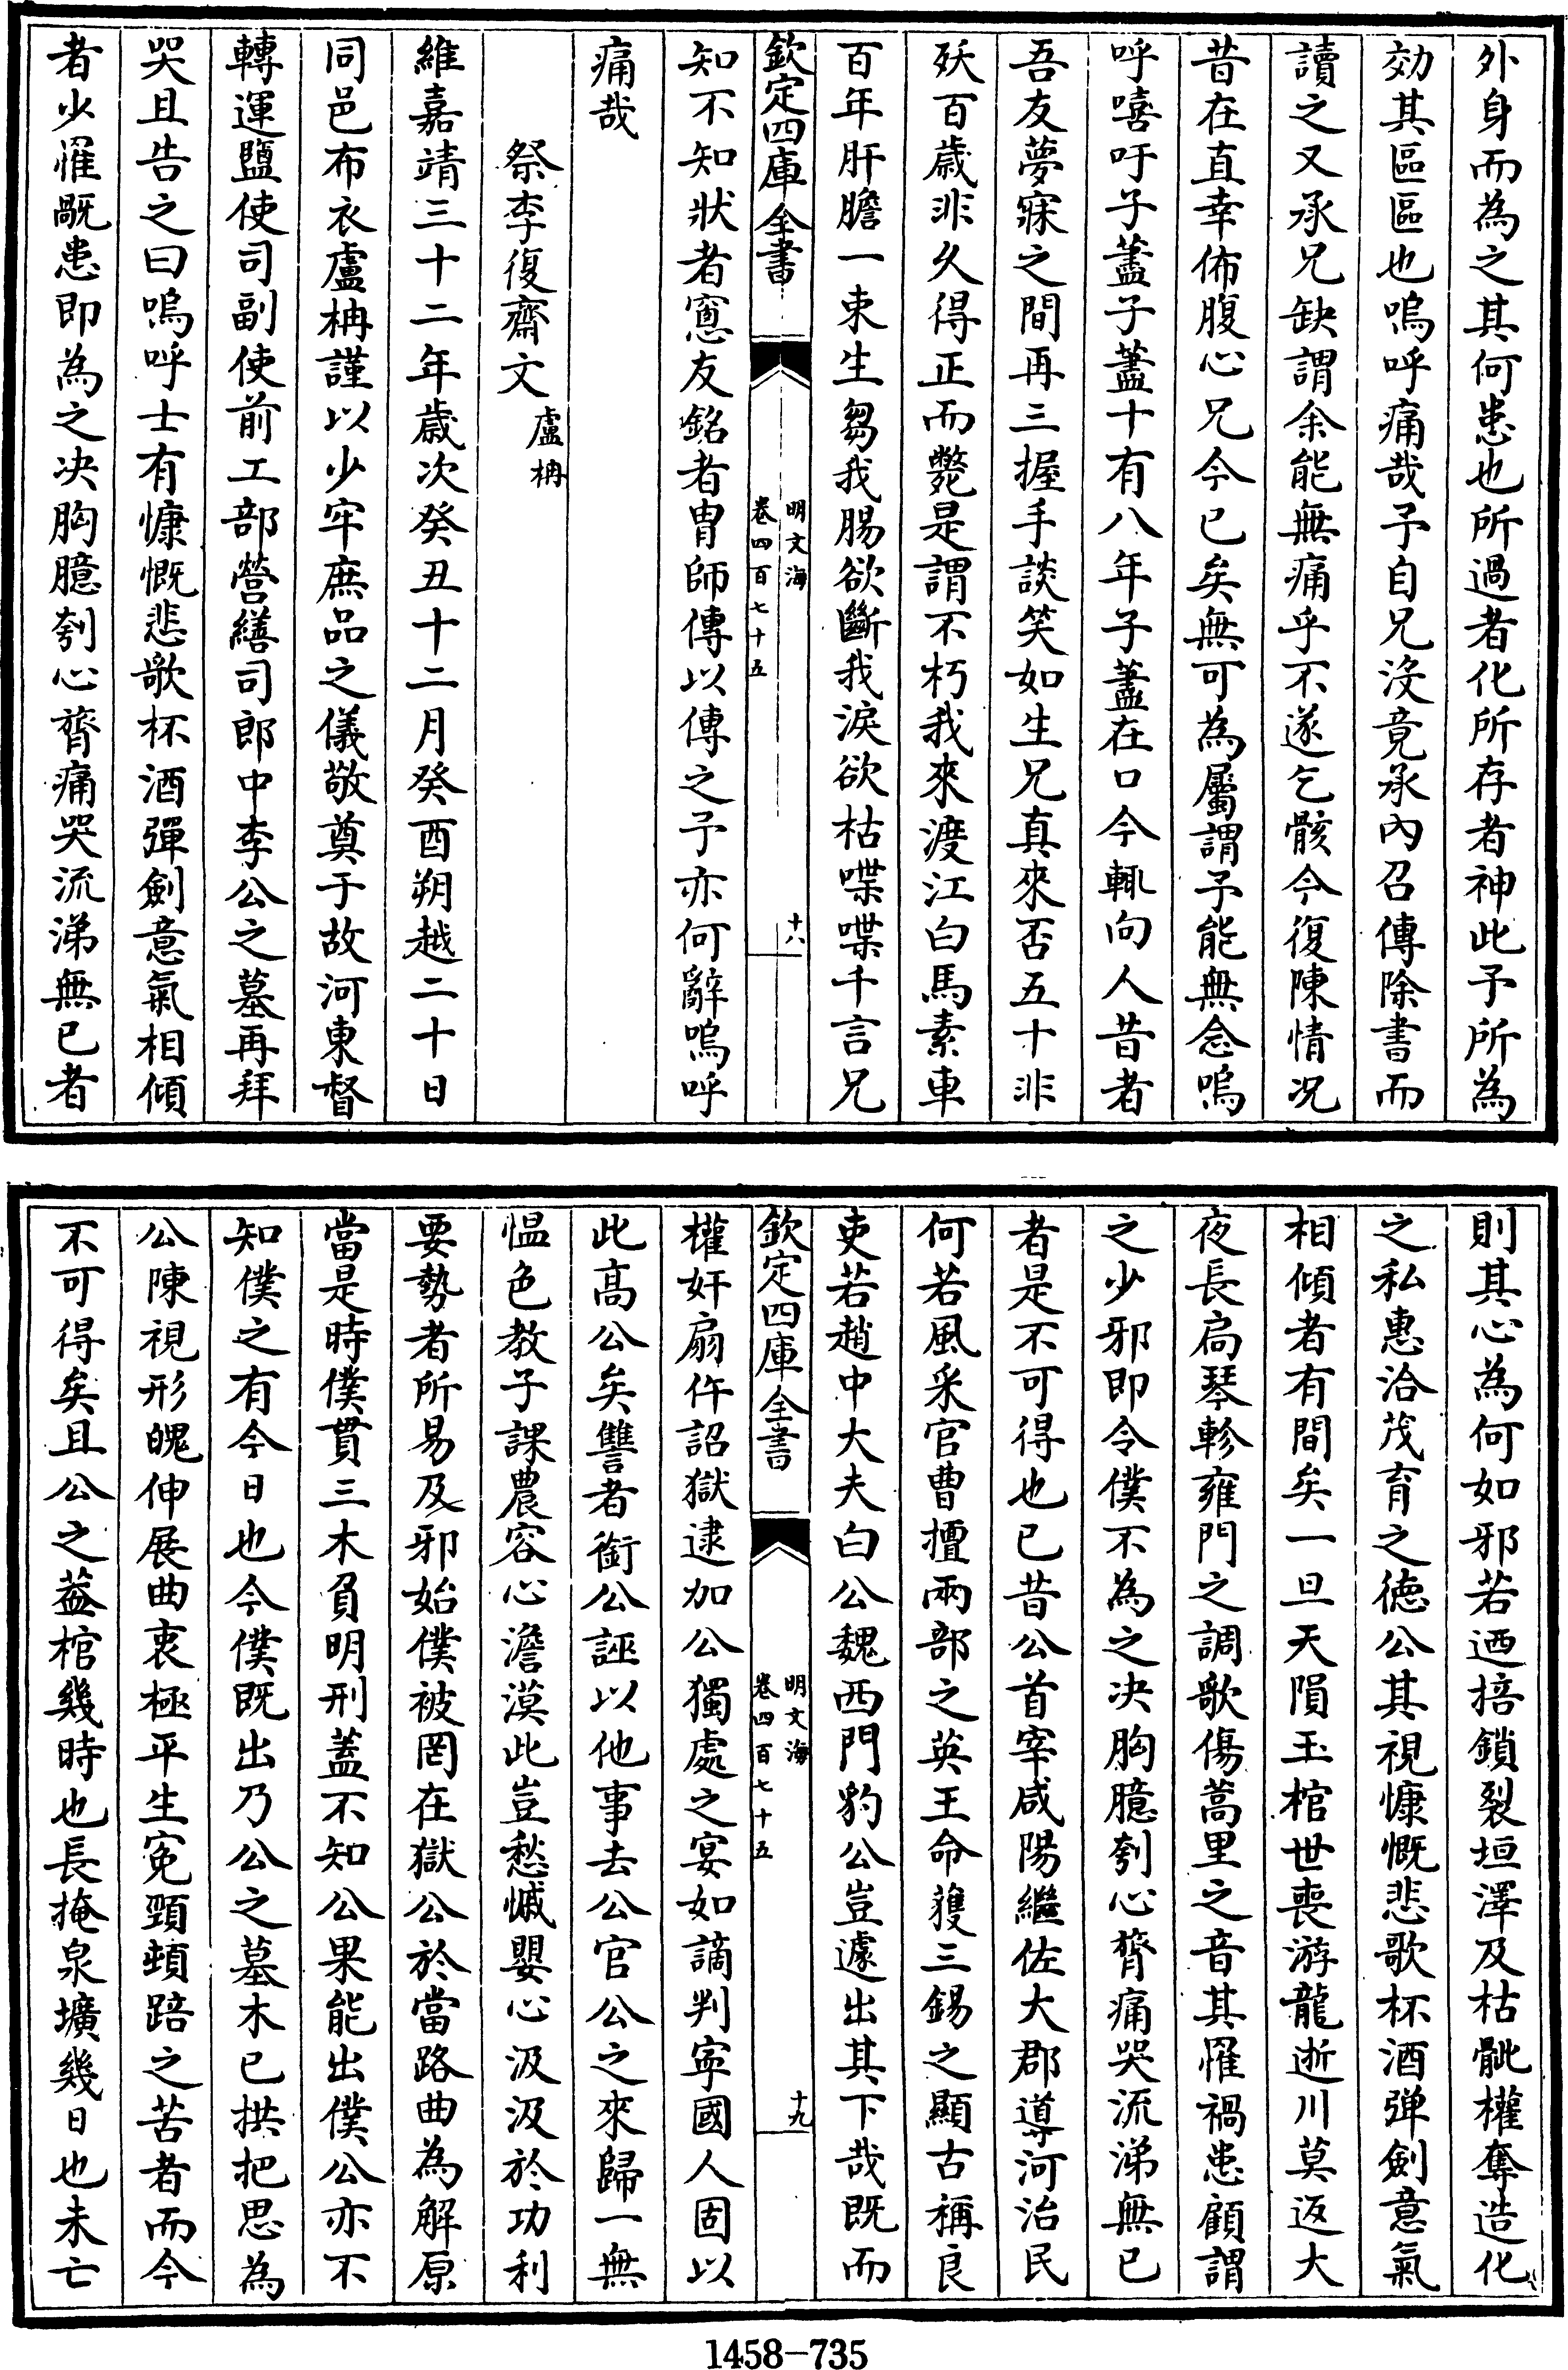 外身而為之其何患也所過者化所存者神此予所為
効其區區也嗚呼痛哉予自兄沒竟承內召傳除書而
讀之又承兄缺謂余能無痛乎不遂乞骸今復陳情况
昔在直幸佈腹心兄今已矣無可為屬謂予能無念嗚
呼嘻吁子蓋子蓋十有八年子蓋在口今輒向人昔者
吾友夢寐之間再三握手談笑如生兄真來否五十非
殀百歲非久得正而斃是謂不朽我來渡江白馬素車
百年肝膽一束生芻我腸欲斷我淚欲枯喋喋千言兄
欽定四庫全書
明文海
卷四百七十五
十八
知不知狀者窻友銘者胄師傳以傳之予亦何辭嗚呼
痛哉
祭李復齋文盧柟
維嘉靖三十二年歲次癸丑十二月癸酉朔越二十日
同邑布衣盧柟謹以少牢庶品之儀敬奠于故河東督
轉運鹽使司副使前工部營繕司郎中李公之墓再拜
哭且告之曰嗚呼士有慷慨悲歌杯酒彈劍意氣相傾
者少罹㦿患即為之決胸臆刳心膂痛哭流涕無已者
則其心為何如邪若迺掊鎖裂垣澤及枯骴權奪造化
之私惠洽茂育之德公其視慷慨悲歌杯酒弹劍意氣
相傾者有間矣一旦天隕玉棺世喪游龍逝川莫返大
夜長扃琴軫雍門之調歌傷蒿里之音其罹禍患顧謂
之少邪即令僕不為之決胸臆刳心膂痛哭流涕無已
者是不可得也已昔公首宰咸陽繼佐大郡導河治民
何若風采官曹擅兩部之英王命蓰三錫之顯古稱良
吏若趙中大夫白公魏西門豹公豈遽出其下哉既而
欽定四庫全書
明文海
卷四百七十五
十九
權奸扇仵詔獄逮加公獨處之宴如謫判寧國人固以
此高公矣讐者銜公誣以他事去公官公之來歸一無
愠色教子課農容心澹漠此豈愁慽嬰心汲汲於功利
要勢者所易及邪始僕被罔在獄公於當路曲為解原
當是時僕貫三木負明刑蓋不知公果能出僕公亦不
知僕之有今日也今僕既出乃公之墓木已拱把思為
公陳視形魄伸展曲衷極平生寃頸頓踣之苦者而今
不可得矣且公之葢棺幾時也長掩泉壙幾日也未亡
1458-735